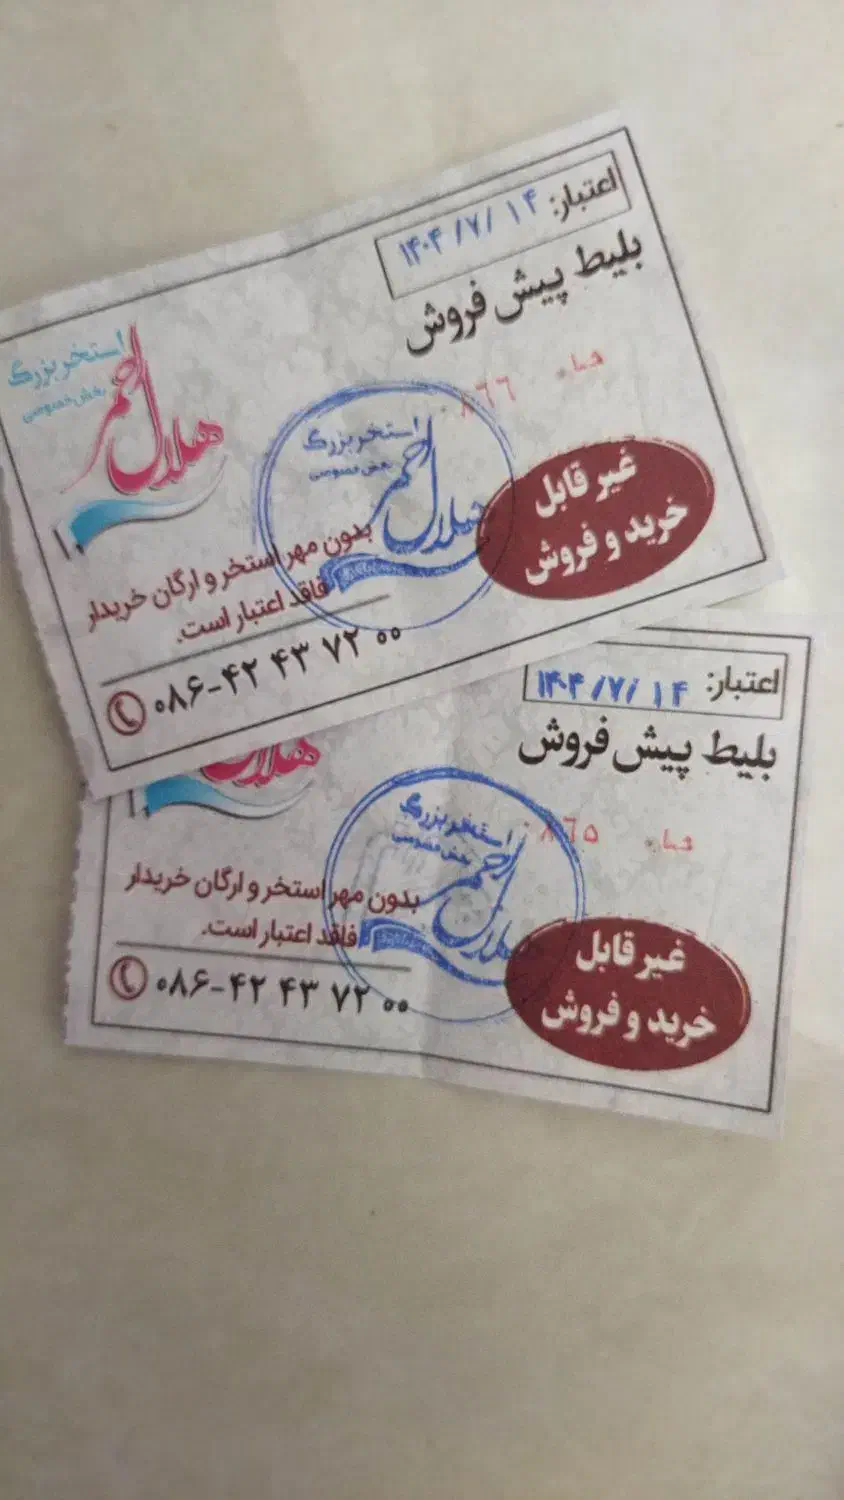 اعتبار: ۱۴۰۴/۷/۱۴
بلیط پیش فروش
۰۸۶۶
استخر بزرگ
بخش خصوصی
هلال احمر
استخر بزرگ
بخش خصوصی
هلال احمر
غیر قابل
خرید و فروش
بدون مهر استخر و ارگان خریدار
فاقد اعتبار است.
۰۸۶-۴۲ ۴۳ ۷۲ ۰۰
اعتبار: ۱۴۰۴/۷/۱۴
بلیط پیش فروش
۰۸۶۵
هلال
استخر بزرگ
بخش خصوصی
هلال احمر
غیر قابل
خرید و فروش
بدون مهر استخر و ارگان خریدار
فاقد اعتبار است.
۰۸۶-۴۲ ۴۳ ۷۲ ۰۰